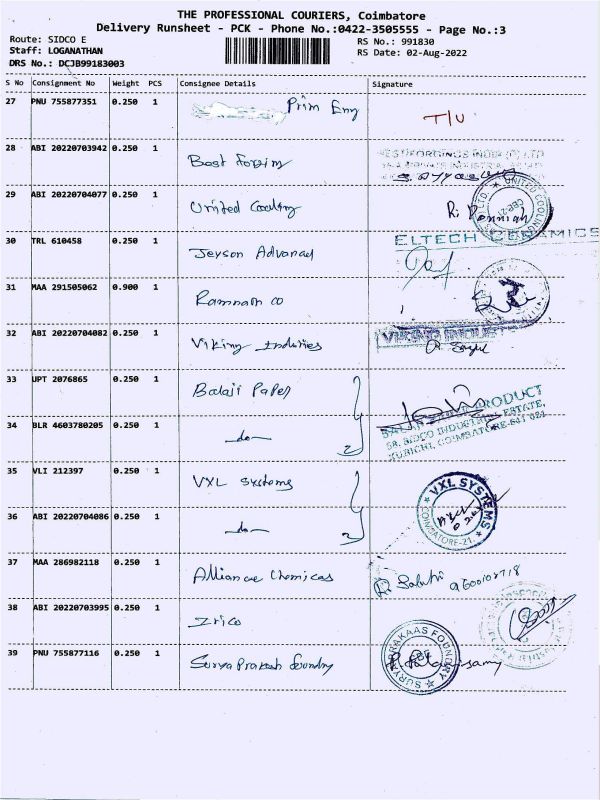 THE PROFESSIONAL COURIERS, Coimbatore
Delivery Runsheet - PCK - Phone No.:0422-3505555 - Page No.:3
Route: SIDCO E
Staff: LOGANATHAN
DRS No.: DCJB99183003
RS No.: 991830
RS Date: 02-Aug-2022
S No Consignment No Weight PCS Consignee Details Signature
27 PNU 755877351 0.250 1 Prim Eng T/U
28 ABI 20220703942 0.250 1 Best forgin
29 ABI 20220704077 0.250 1 United Cooling R.
UNITED COOLING
CBE-21
30 TRL 610458 0.250 1 Jeyson Advanced ELTECH CERAMICS
31 MAA 291505062 0.900 1 Ramnath co
32 ABI 20220704082 0.250 1 Viking Indusries VIKING INDUST
33 UPT 2076865 0.250 1 Balaji Paper
34 BLR 4603780205 0.250 1 -do- 2
PRODUCT
SR. SIDCO INDUSTRIAL ESTATE,
KURICHI, COIMBATORE-641 021
35 VLI 212397 0.250 1 VXL systems
36 ABI 20220704086 0.250 1 -do- 2
VXL SYSTEMS
COIMBATORE-21.
37 MAA 286982118 0.250 1 Alliance Chemicas 9600102718
38 ABI 20220703995 0.250 1 Irico
39 PNU 755877116 0.250 1 Surya Prakash foundry
SURYAPRAKAAS FOUNDRY